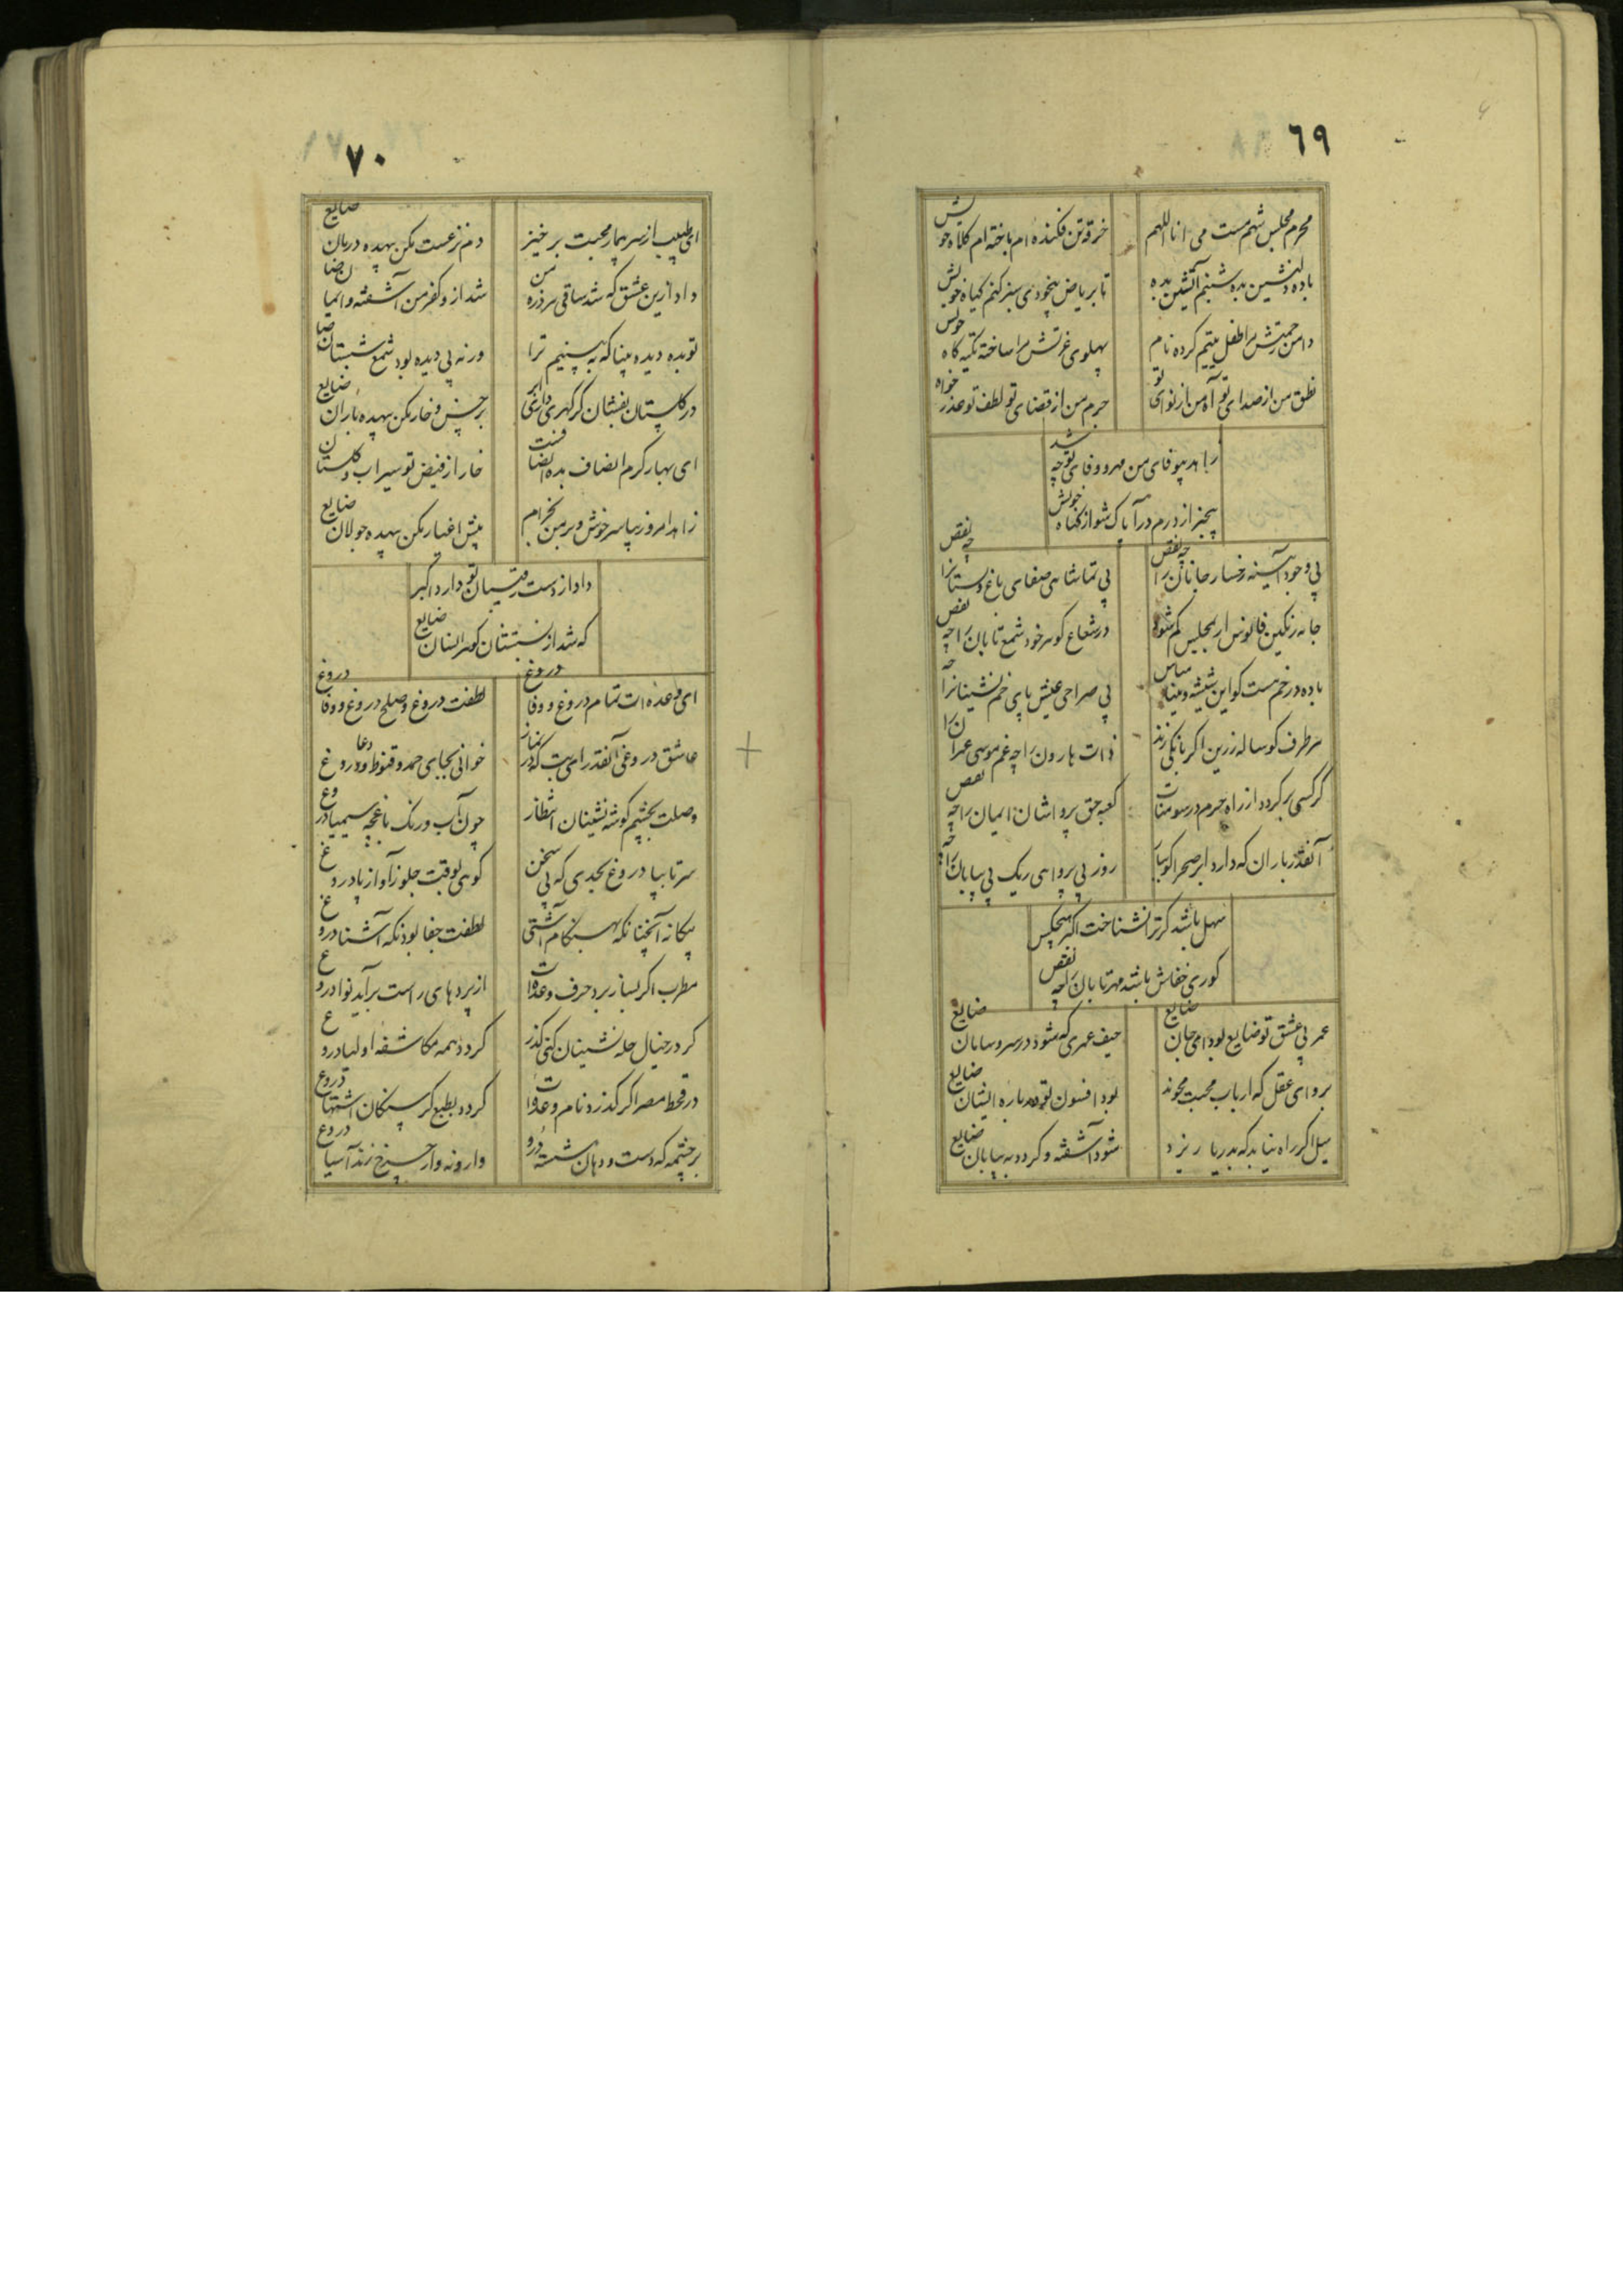 ٦٩
محرم مجلس شهم مست می انا اللهم
خرقه تن فکنده ام باخته ام کلاه خویش
باده دلنشین بده شبنم آتشین بده
تا بریاض بیخودی سبز کنم کیاه خویش
دامن رحمتش مرا طفل یتیم کرده نام
پهلوی عزتش مرا ساخته تکیه کاه خویش
نطق من از صدای تو آه من از نوای تو
جرم من از قضای تو لطف تو عذر خواه
زاهد بیوفای من مهر و وفای تو چه شد
بیخبر از درم درآ پاک شو از کناه خویش
بی وجود آینه رخسار جانان را چه نقص
بی تماشای صفای باغ بستانرا چه نقص
جامه رنکین فانوس ار بمجلس کم شود
در شعاع کوهر خود شمع تابان را چه نقص
باده در خم هست کو این شیشه و مینا مباش
بی صراحی عیش پای خم نشینانرا چه
سرطرف کوساله زرین اکر بانکی زند
ذات هارون را چه غم موسی عمران را
کر کسی بر کردد از راه حرم در سومنات
کعبه حق پرواشان ایمان را چه نقص
آنقدر باران که دارد ابر صحرا کو مبار
روز بی پروای ریک بی بیابان را چه
سهل باشد کر ترا نشناخت اکبر هیچکس
کوری خفاش باشد مهر تابان را چه نقص
عمر بی عشق تو ضایع بود ای جان ضایع
حیف عمری که شود در سر و سامان ضایع
برو ای عقل که ارباب محبت محوند
بود افسون تو در باره ایشان ضایع
سیل اکر راه نیابد که بدریا ریزد
شود آشفته و کردد به بیابان ضایع
٧٠
ای طبیب از سر بیمار محبت برخیز
دم نزعست مکن بیهده درمان ضایع
داد ازین عشق که شد ساقی هر ذره من
شد ازو کفر من آشفته و ایمان ضا
تو بده دیده بینا که به بینیم ترا
ورنه بی دیده بود شمع شبستان ضا
در کلستان بفشان کر کهری داری ابر
بر خس و خار مکن بیهده باران ضایع
ای بهار کرم انصاف بده انصافست
خار از فیض تو سیراب و کلستان
زاهد امروز بیا سرخوش و بر من بخرام
پیش اغیار مکن بیهده جولان ضایع
داد از دست رقیبان تو دارد اکبر
که شد از نسبتشان کوهر انسان ضایع
ای وعده ات تمام دروغ و وفا دروغ
لطفت دروغ و صلح دروغ و وفا دروغ
عاشق دروغی آنقدر است که در نماز
خوانی بجای حمد و قنوط و دعا دروغ
وصلت بچشم کوشه نشینان انتظار
چون آب و رنک باغچه سیمیا دروغ
سر تا بپا دروغ بحدی که بی سخن
کوهی بوقت جلوز آواز پا دروغ
بیکانه آنچنانکه بهنکام آشتی
لطفت جفا بود نکه آشنا دروغ
مطرب اکر بساز برد حرف وعده ات
از پرد های راست برآید نوا دروغ
کر در خیال چله نشینان کنی کذر
کردد همه مکاشفه اولیا دروغ
در قحط مصر اکر کذرد نام وعده ات
کردد بطبع کرسنکان اشتها دروغ
بر چشمه که دست و دهان شسته درو
وارونه وار چرخ زند آسیا دروغ